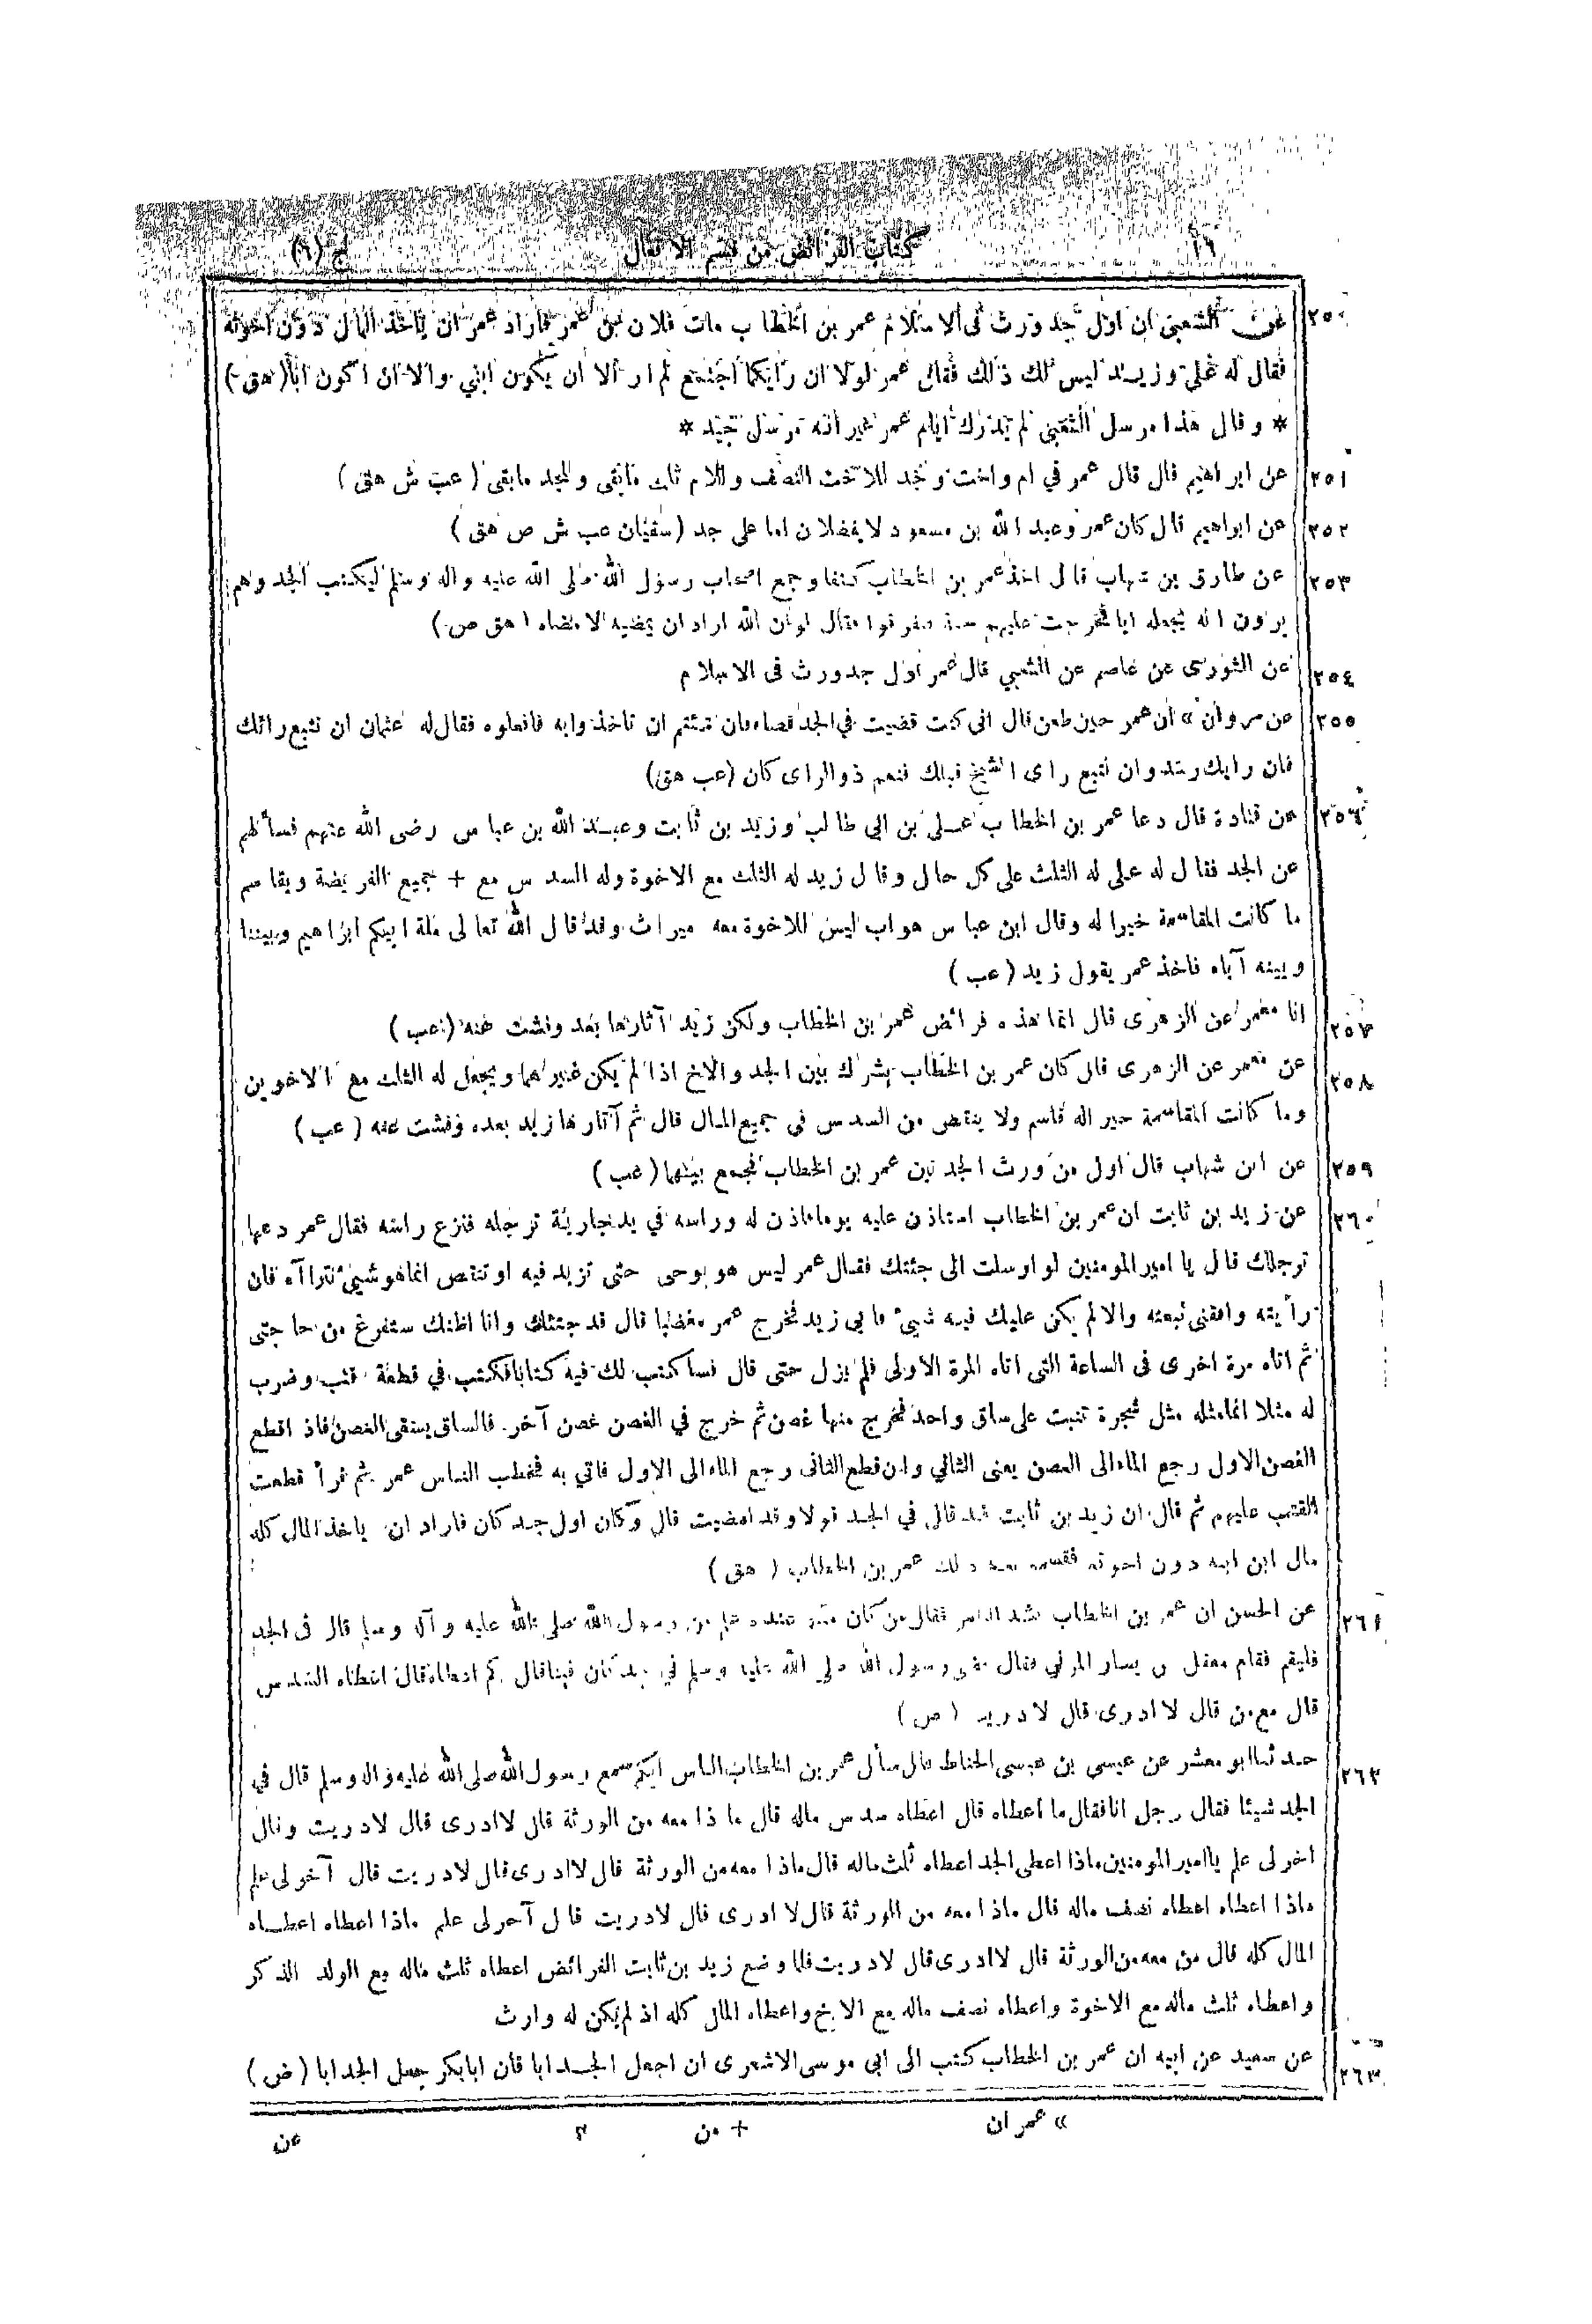 ١٦ كتاب الفرائض من قسم الافعال ج (٦)
٢٥٠ عن الشعبى ان اول جد ورث فى الاسلام عمر بن الخطاب مات فلان بن عمر فاراد عمر ان ياخذ المال دون اخوته
فقال له على وزيد ليس لك ذلك فقال عمر لولا ان رأيكما اجتمع لم ار الا ان يكون ابني والا ان اكون ابا (هق)
* وقال هذا مرسل الشعبى لم يدرك ايام عمر غير انه مرسل جيد *
٢٥١ عن ابراهيم قال قال عمر في ام واخت وجد للاخت النصف وللام ثلث مابقى وللجد مابقى (عب ش هق)
٢٥٢ عن ابراهيم قال كان عمر وعبد الله بن مسعود لا يفضلان اما على جد (سفيان عب ش ص هق)
٢٥٣ عن طارق بن شهاب قال اخذ عمر بن الخطاب كتفا وجمع اصحاب رسول الله صلى الله عليه واله وسلم ليكتب الجد وهم
يرون انه يجعله ابا فخرجت عليهم حية فتفرقوا فقال لو ان الله اراد ان يمضيه لامضاه (هق ص)
٢٥٤ عن الثورى عن عاصم عن الشعبي قال عمر اول جد ورث فى الاسلام
٢٥٥ عن مروان » ان عمر حين طعن قال انى كنت قضيت في الجد قضاء فان شئتم ان تاخذوا به فافعلوه فقال له عثمان ان نتبع رائك
فان رايك رشد وان نتبع راى الشيخ قبلك فنعم ذو الراى كان (عب هق)
٢٥٦ عن قتادة قال دعا عمر بن الخطاب على بن ابي طالب وزيد بن ثابت وعبد الله بن عباس رضى الله عنهم فسألهم
عن الجد فقال له على له الثلث على كل حال وقال زيد له الثلث مع الاخوة وله السدس مع + جميع الفريضة ويقاسم
ما كانت المقاسمة خيرا له وقال ابن عباس هو اب ليس للاخوة معه ميراث وقد قال الله تعالى ملة ابيكم ابراهيم وبيننا
وبينه آباء فاخذ عمر بقول زيد (عب)
٢٥٧ انا معمر عن الزهرى قال انما هذه فرائض عمر بن الخطاب ولكن زيد آثارها بعد وفشت عنه (عب)
٢٥٨ عن معمر عن الزهرى قال كان عمر بن الخطاب يشرك بين الجد والاخ اذا لم يكن غيرهما ويجعل له الثلث مع الاخوين
وما كانت المقاسمة خيرا له قاسم ولا ينقص من السدس فى جميع المال قال ثم آثارها زيد بعده وفشت عنه (عب)
٢٥٩ عن ابن شهاب قال اول من ورث الجد بين عمر بن الخطاب فجمع بينهما (عب)
٢٦٠ عن زيد بن ثابت ان عمر بن الخطاب استاذن عليه يوما فاذن له وراسه في يد جارية ترجله فنزع راسه فقال عمر دعها
ترجلك قال يا امير المومنين لو ارسلت الى جئتك فقال عمر ليس هو بوحى حتى تزيد فيه او تنقص انما هو شيئ نتراآه فان
رأيته وافقنى تبعته والا لم يكن عليك فيه شيئ فابى زيد فخرج عمر مغضبا قال قد جئتك وانا اظنك ستفرغ من حاجتى
ثم اتاه مرة اخرى فى الساعة التى اتاه المرة الاولى فلم يزل حتى قال فساكتب لك فيه كتابا فكتب في قطعة قتب وضرب
له مثلا انما مثله مثل شجرة تنبت على ساق واحد فخرج منها غصن ثم خرج في الغصن غصن آخر فالساق يسقى الغصن فاذ اقطع
الغصن الاول رجع الماء الى الغصن يعنى الثاني وان قطع الثانى رجع الماء الى الاول فاتي به فخطب الناس عمر ثم قرأ قطعت
القتب عليهم ثم قال ان زيد بن ثابت قد قال في الجد قولا وقد امضيت قال وكان اول جد كان فاراد ان ياخذ المال كله
مال ابن ابنه دون اخوته فقسمه بعد ذلك عمر بن الخطاب (هق)
٢٦١ عن الحسن ان عمر بن الخطاب نشد الناس فقال من كان منكم عنده علم من رسول الله صلى الله عليه وآله وسلم قال فى الجد
فليقم فقام معقل بن يسار المزني فقال قضى رسول الله صلى الله عليه وسلم في جد كان فينا قال كم اعطاه قال اعطاه السدس
قال مع من قال لا ادرى قال لا دريت (ص)
٢٦٢ حدثنا ابو معشر عن عيسى بن عيسى الحناط قال سأل عمر بن الخطاب الناس ايكم سمع رسول الله صلى الله عليه واله وسلم قال في
الجد شيئا فقال رجل انا فقال ما اعطاه قال اعطاه سدس ماله قال ماذا معه من الورثة قال لا ادرى قال لا دريت وقال
اخر لى علم يا امير المومنين ماذا اعطى الجد اعطاه ثلث ماله قال ماذا معه من الورثة قال لا ادرى قال لا دريت قال آخر لى علم
ماذا اعطاه اعطاه نصف ماله قال ماذا معه من الورثة قال لا ادرى قال لا دريت قال آخر لى علم ماذا اعطاه اعطاه
المال كله قال من معه من الورثة قال لا ادرى قال لا دريت فلما وضع زيد بن ثابت الفرائض اعطاه ثلث ماله مع الولد الذكر
واعطاه ثلث ماله مع الاخوة واعطاه نصف ماله مع الاخ واعطاه المال كله اذ لم يكن له وارث
٢٦٣ عن سعيد عن ابيه ان عمر بن الخطاب كتب الى ابى موسى الاشعرى ان اجعل الجد ابا فان ابابكر جعل الجد ابا (ض)
» عمران + من ٢ عن